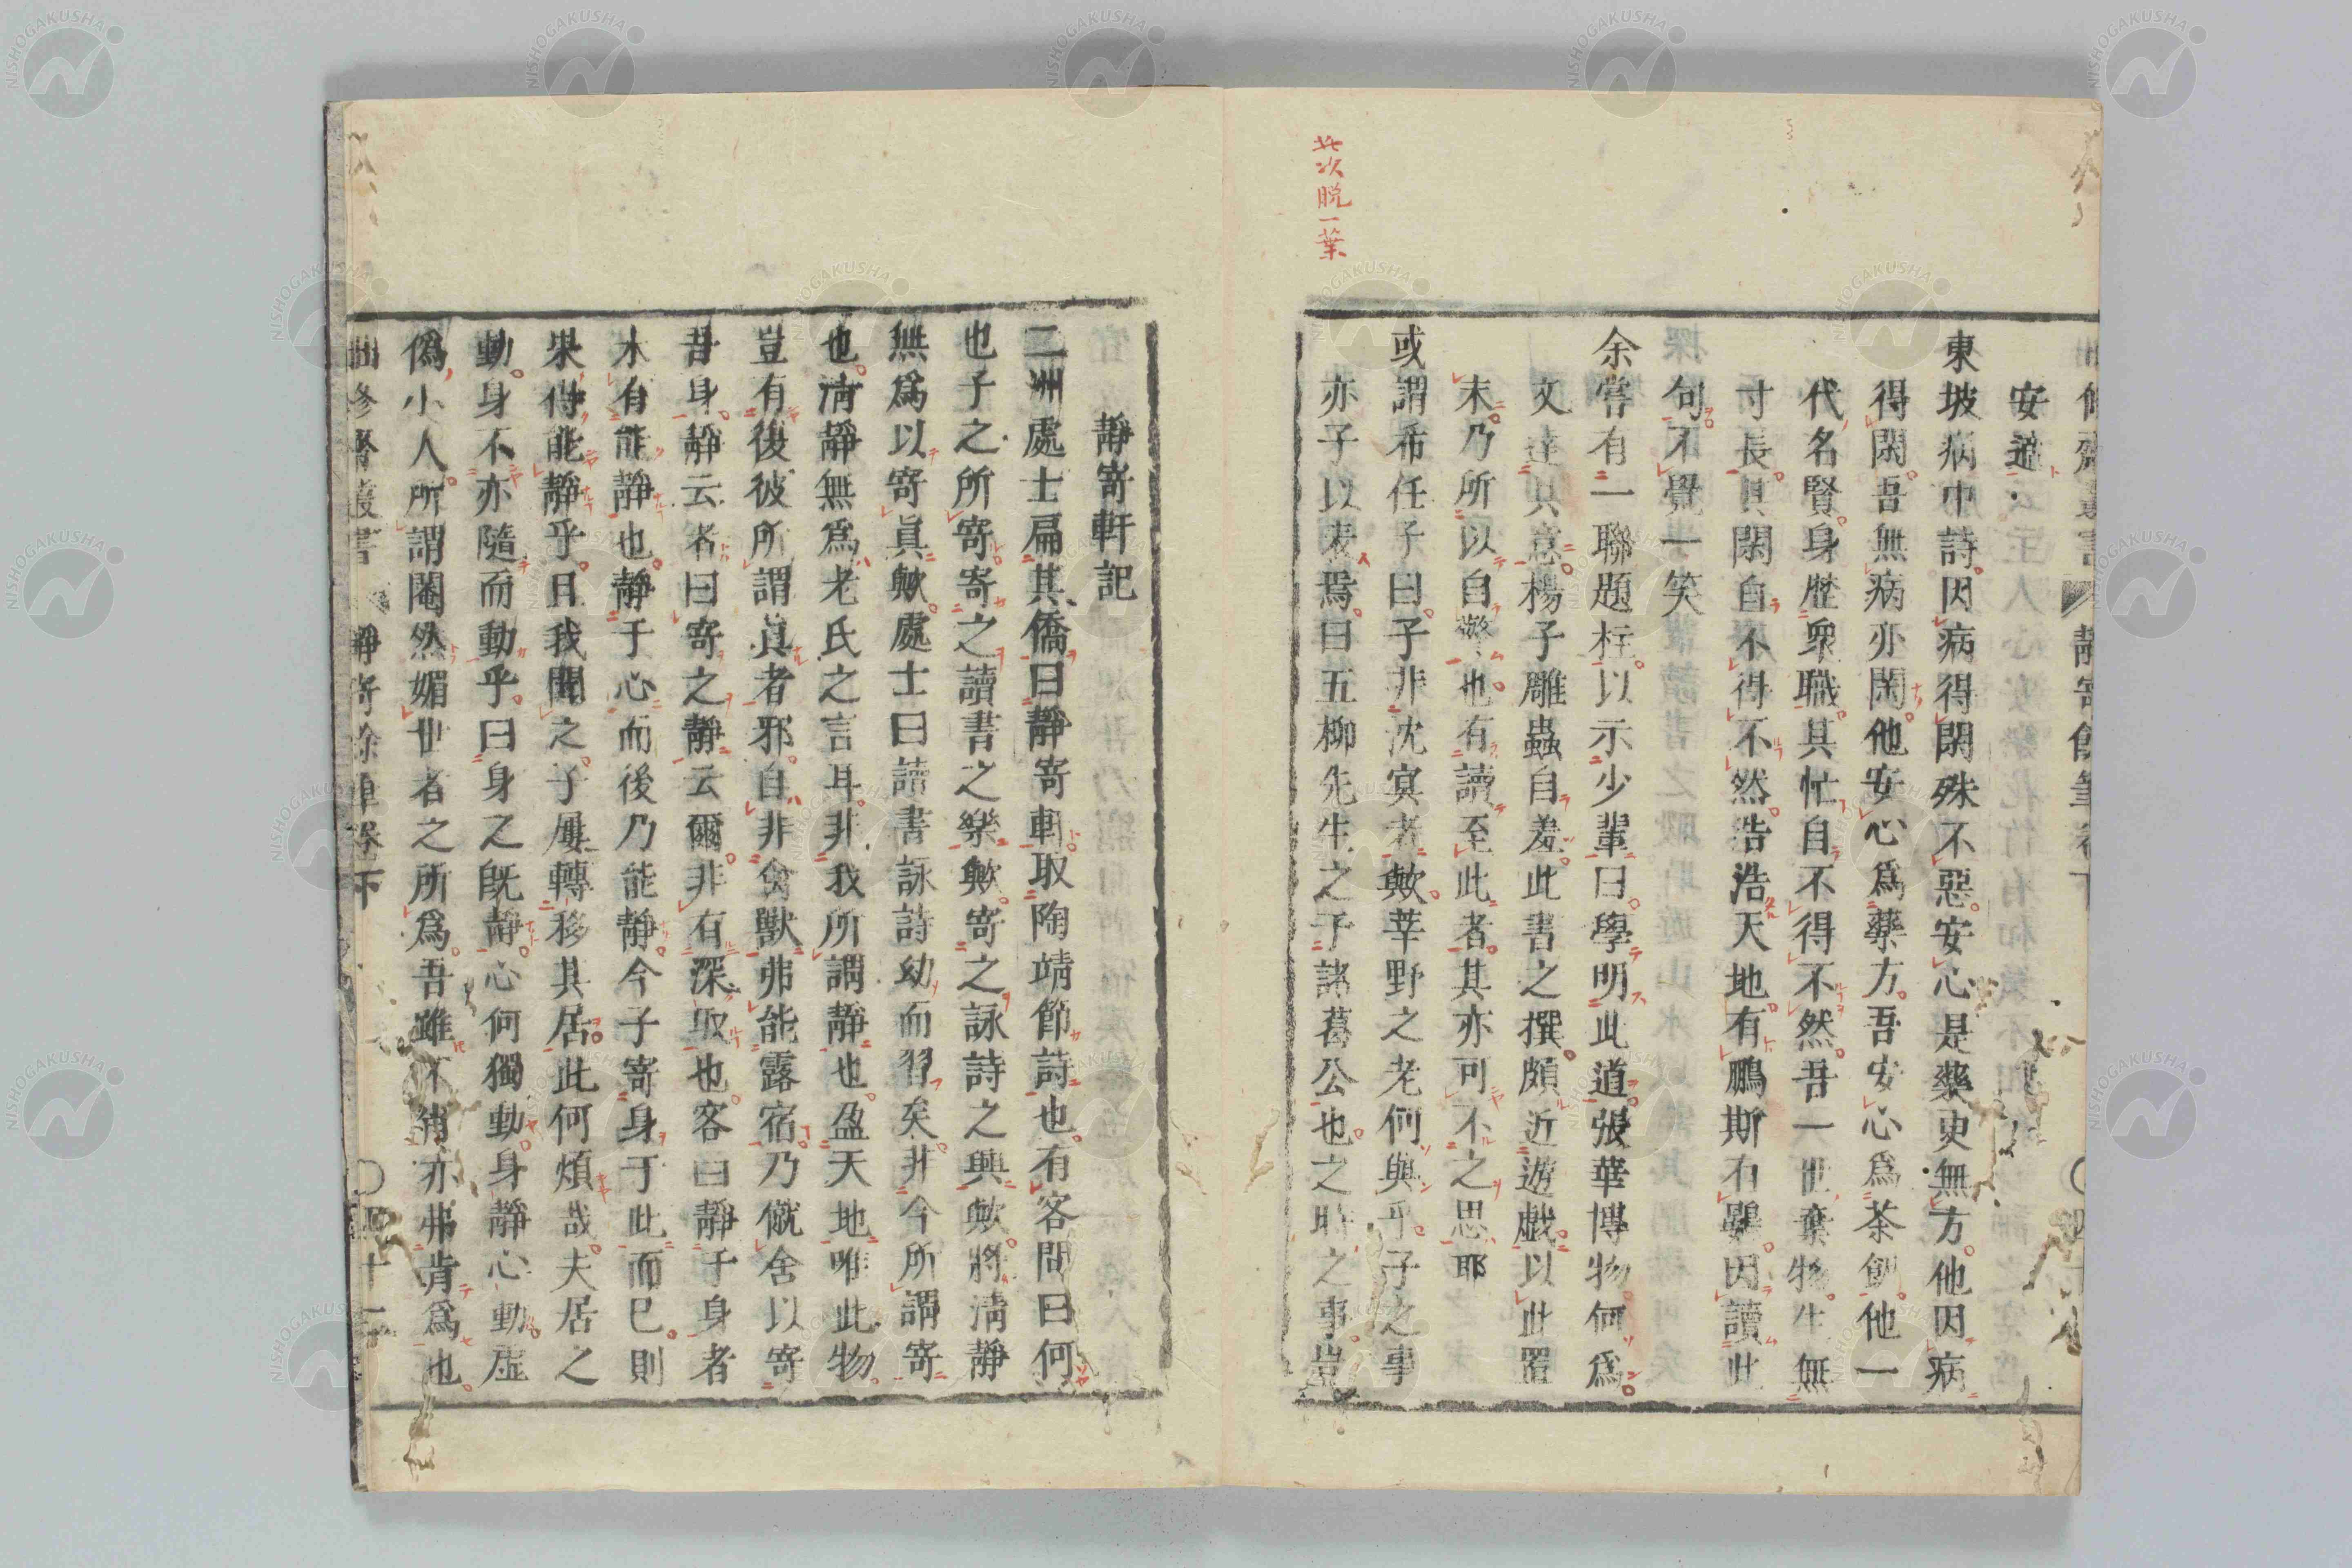 此次脫一葉
安道
東坡病中詩因病得閑殊不惡安心是藥更無方他因病
得閑吾無病亦閑他安心爲藥方吾安心爲茶飯他一
代名賢身歷衆職其忙自不得不然吾一世棄物生無
寸長其閑自不得不然浩浩天地有鵬斯有鷃因讀此
句不覺一笑
余嘗有一聯題柱以示少輩曰學明此道張華博物何爲
文達其意楊子雕蟲自羞此書之撰頗近遊戲以此置
末乃所以自警也有讀至此者其亦可不之思耶
或謂希任子曰子非沈冥者歟莘野之老何與乎子之事
亦子以表焉曰五柳先生之于諸葛公也之時之事豈
靜寄軒記
二洲處士扁其僑曰靜寄軒取陶靖節詩也有客問曰何
也子之所寄寄之讀書之樂歟寄之詠詩之興歟將淸靜
無爲以寄眞歟處士曰讀書詠詩幼而習矣非今所謂寄
也淸靜無爲老氏之言耳非我所謂靜也盈天地唯此物
豈有後彼所謂眞者邪自非禽獸弗能露宿乃僦舍以寄
吾身靜云者曰寄之靜云爾非有深取也客曰靜于身者
木有能靜也靜于心而後乃能靜今子寄身于此而已則
果得能靜乎且我聞之子屢轉移其居此何煩哉夫居之
動身不亦隨而動乎曰身之旣靜心何獨動身靜心動虛
僞小人所謂闇然媚世者之所爲吾雖不肖亦弗肯爲也
靜寄餘筆卷下
NISHOGAKUSHA